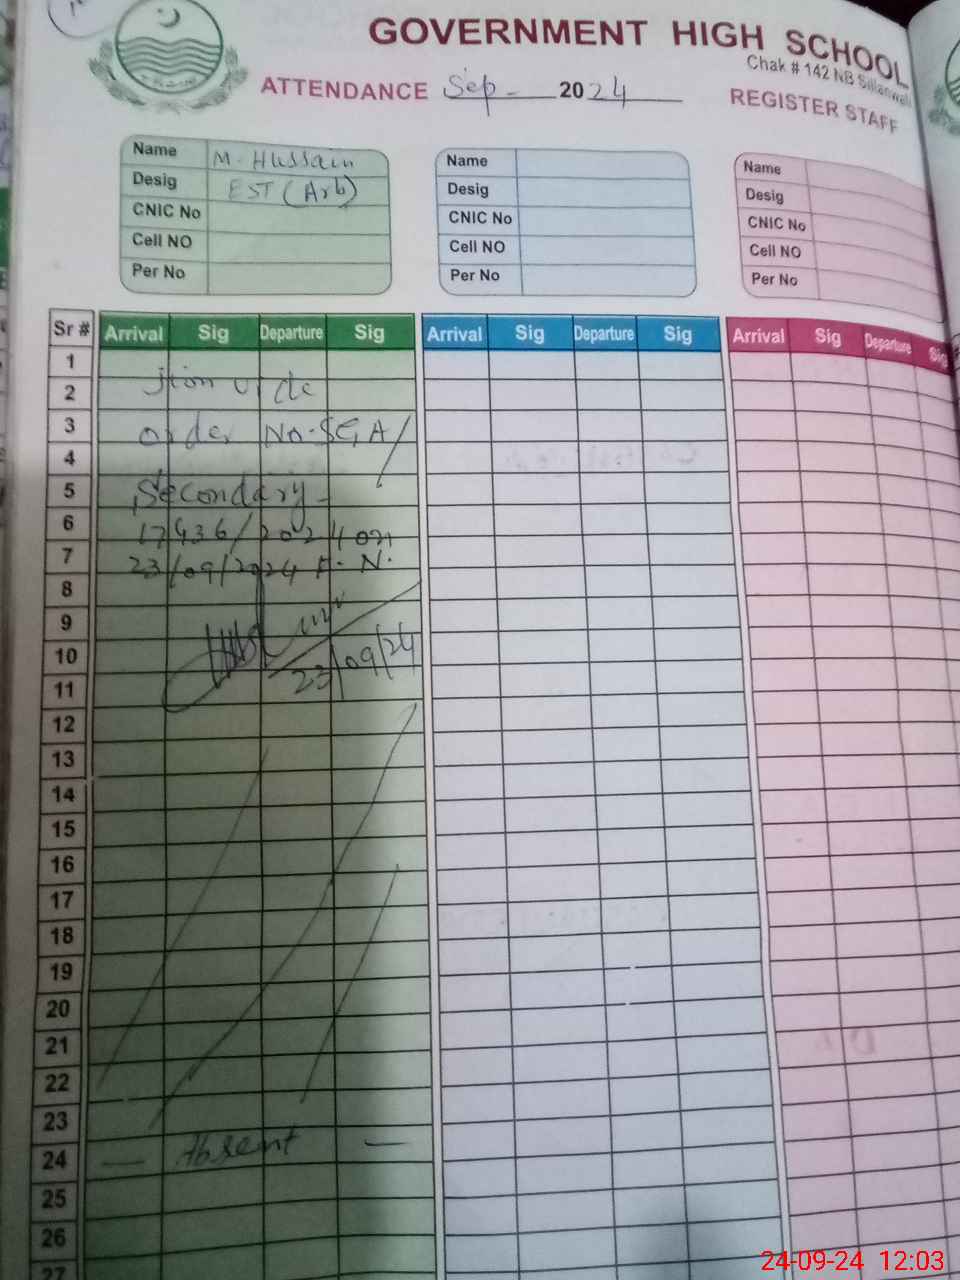 GOVERNMENT HIGH SCHOOL
Chak # 142 NB Sillanwali
ATTENDANCE Sep - 2024 REGISTER STAFF
Name M. Hussain
Desig EST (Arb)
CNIC No
Cell NO
Per No
Name
Desig
CNIC No
Cell NO
Per No
Name
Desig
CNIC No
Cell NO
Per No
Sr # Arrival Sig Departure Sig Arrival Sig Departure Sig Arrival Sig Departure Sig
1
2 jion vide
3 order No. SGA/
4
5 Secondary -
6 17436/2024 on
7 23/09/2024 F. N.
8
9
10 23/09/24
11
12
13
14
15
16
17
18
19
20
21
22
23
24 — Absent —
25
26
27
24-09-24 12:03